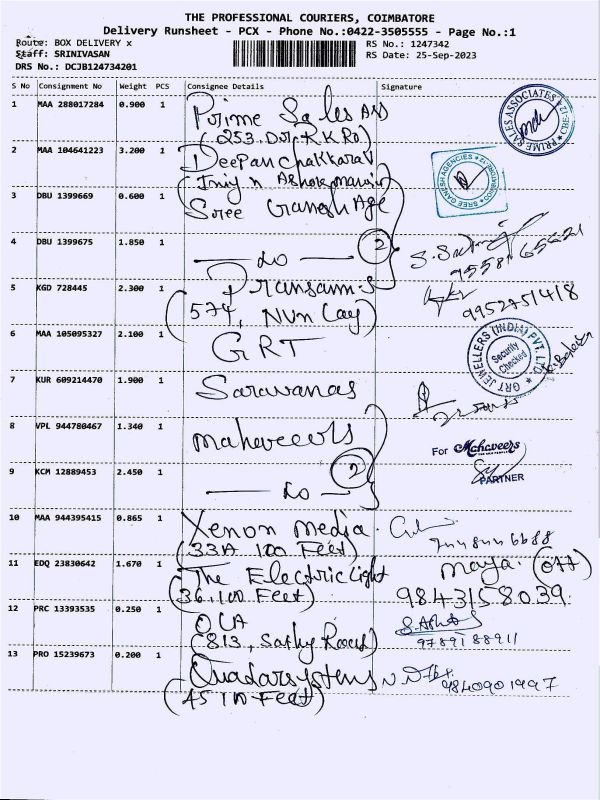 THE PROFESSIONAL COURIERS, COIMBATORE
Delivery Runsheet - PCX - Phone No.:0422-3505555 - Page No.:1
Route: BOX DELIVERY x
RS No.: 1247342
Staff: SRINIVASAN
RS Date: 25-Sep-2023
DRS No.: DCJB124734201
S No Consignment No Weight PCS Consignee Details Signature
1 MAA 288017284 0.900 1 Prime Sales
PRIME SALES ASSOCIATES
2 MAA 104641223 3.200 1
SREE GANESH AGENCIES
3 DBU 1399669 0.600 1 Sree Ganesh Age
4 DBU 1399675 1.850 1 — Do — 2
5 KGD 728445 2.300 1
9952751418
(574, NVN Lay)
6 MAA 105095327 2.100 1 GRT
GRT JEWELLERS (INDIA) PVT. LTD.
Security Checked
7 KUR 609214470 1.900 1 Saravanas
8 VPL 944780467 1.340 1 Mahaveers
For Mahaveers
PARTNER
9 KCM 12889453 2.450 1 — Do — 2
10 MAA 944395415 0.865 1 Xenon Media
(33A 100 Feet)
11 EDQ 23830642 1.670 1 The Electric Light
Maya (Off)
(36, 100 Feet)
9843158039
12 PRC 13393535 0.250 1 OLA
(813, Sathy Road)
9789188911
13 PRO 15239673 0.200 1 Quadarsystens
9840901997
(45 100 Feet)